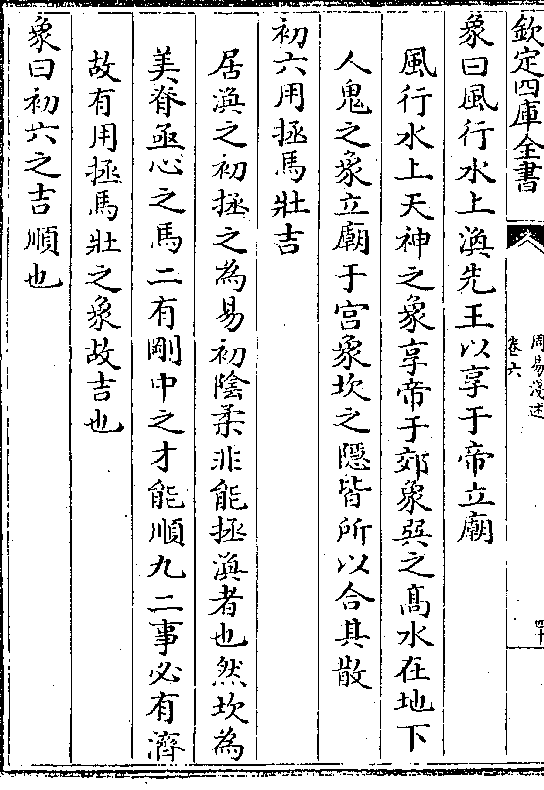 欽定四庫全書
周易淺述
卷六
四十
象曰風行水上渙先王以享于帝立廟
風行水上天神之象享帝于郊象巽之髙水在地下
人鬼之象立廟于宫象坎之隱皆所以合其散
初六用拯馬壯吉
居渙之初拯之為易初陰柔非能拯渙者也然坎為
美脊亟心之馬二有剛中之才能順九二事必有濟
故有用拯馬壯之象故吉也
象曰初六之吉順也